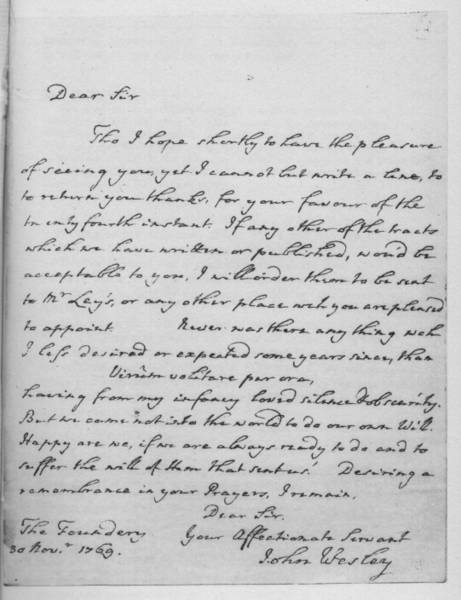 Dear Sir
Tho I hope shortly to have the pleasure
of seeing you, yet I cannot but write a line, to
to return you thanks, for your favour of the
twentyfourth instant. If any other of the tracts
which we have written or published, wou'd be
acceptable to you, I will order them to be sent
to Mr Lay's, or any other place wch you are pleased
to appoint. Never was there any thing wch
I less desired or expected some years since, than
Virûm volitare per ora,
having from my infancy loved silence & obscurity.
But we came not into the world to do our own Will.
Happy are we, if we are always ready to do and to
suffer the will of Him that sent us! Desiring a
remembrance in your Prayers, I remain,
Dear Sir.
The Foundery Your Affectionate Servant
30 Novr. 1769. John Wesley